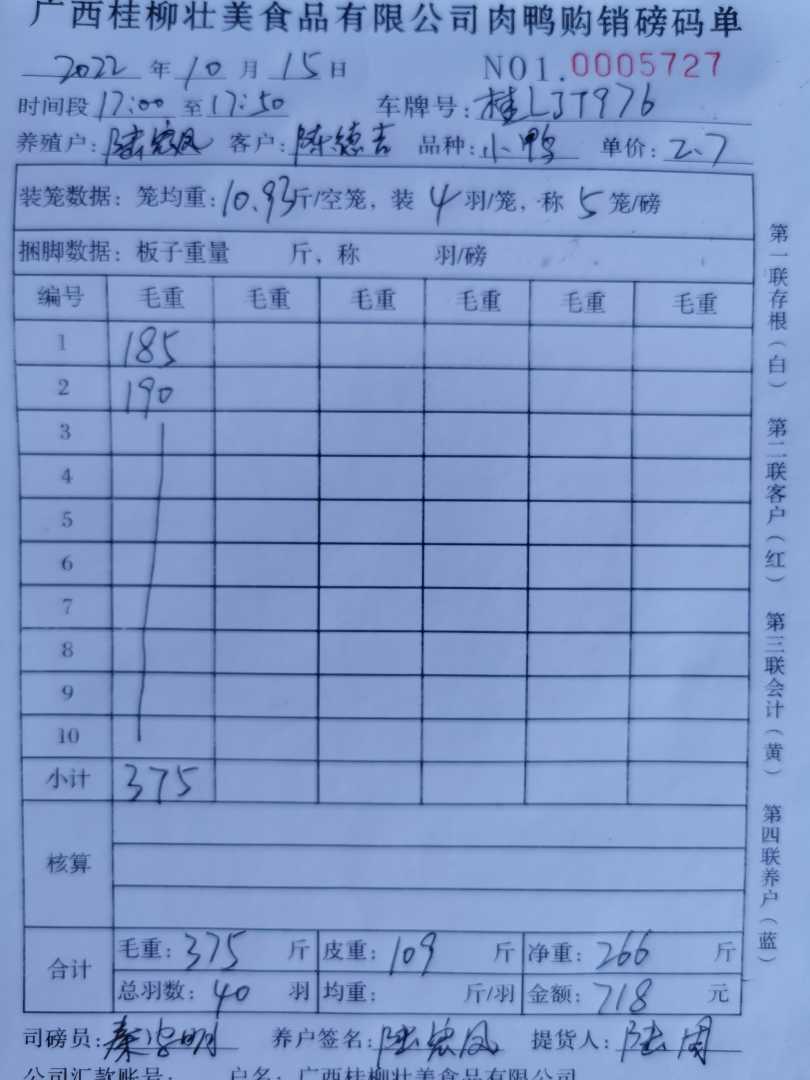 广西桂柳壮美食品有限公司肉鸭购销磅码单
2022 年 10 月 15 日 NO1.0005727
时间段 17:00 至 17:50 车牌号: 桂LJT976
养殖户: 陆宏凤 客户: 陈德吉 品种: 小鸭 单价: 2.7
装笼数据: 笼均重: 10.93 斤/空笼, 装 4 羽/笼, 称 5 笼/磅
捆脚数据: 板子重量 斤, 称 羽/磅
编号 毛重 毛重 毛重 毛重 毛重 毛重
1 185
2 190
3
4
5
6
7
8
9
10
小计 375
核算
合计 毛重: 375 斤 皮重: 109 斤 净重: 266 斤
总羽数: 40 羽 均重: 斤/羽 金额: 718 元
司磅员: 秦 明 养户签名: 陆宏凤 提货人: 陆周
公司汇款账号: 户名: 广西桂柳壮美食品有限公司
第一联存根(白) 第二联客户(红) 第三联会计(黄) 第四联养户(蓝)